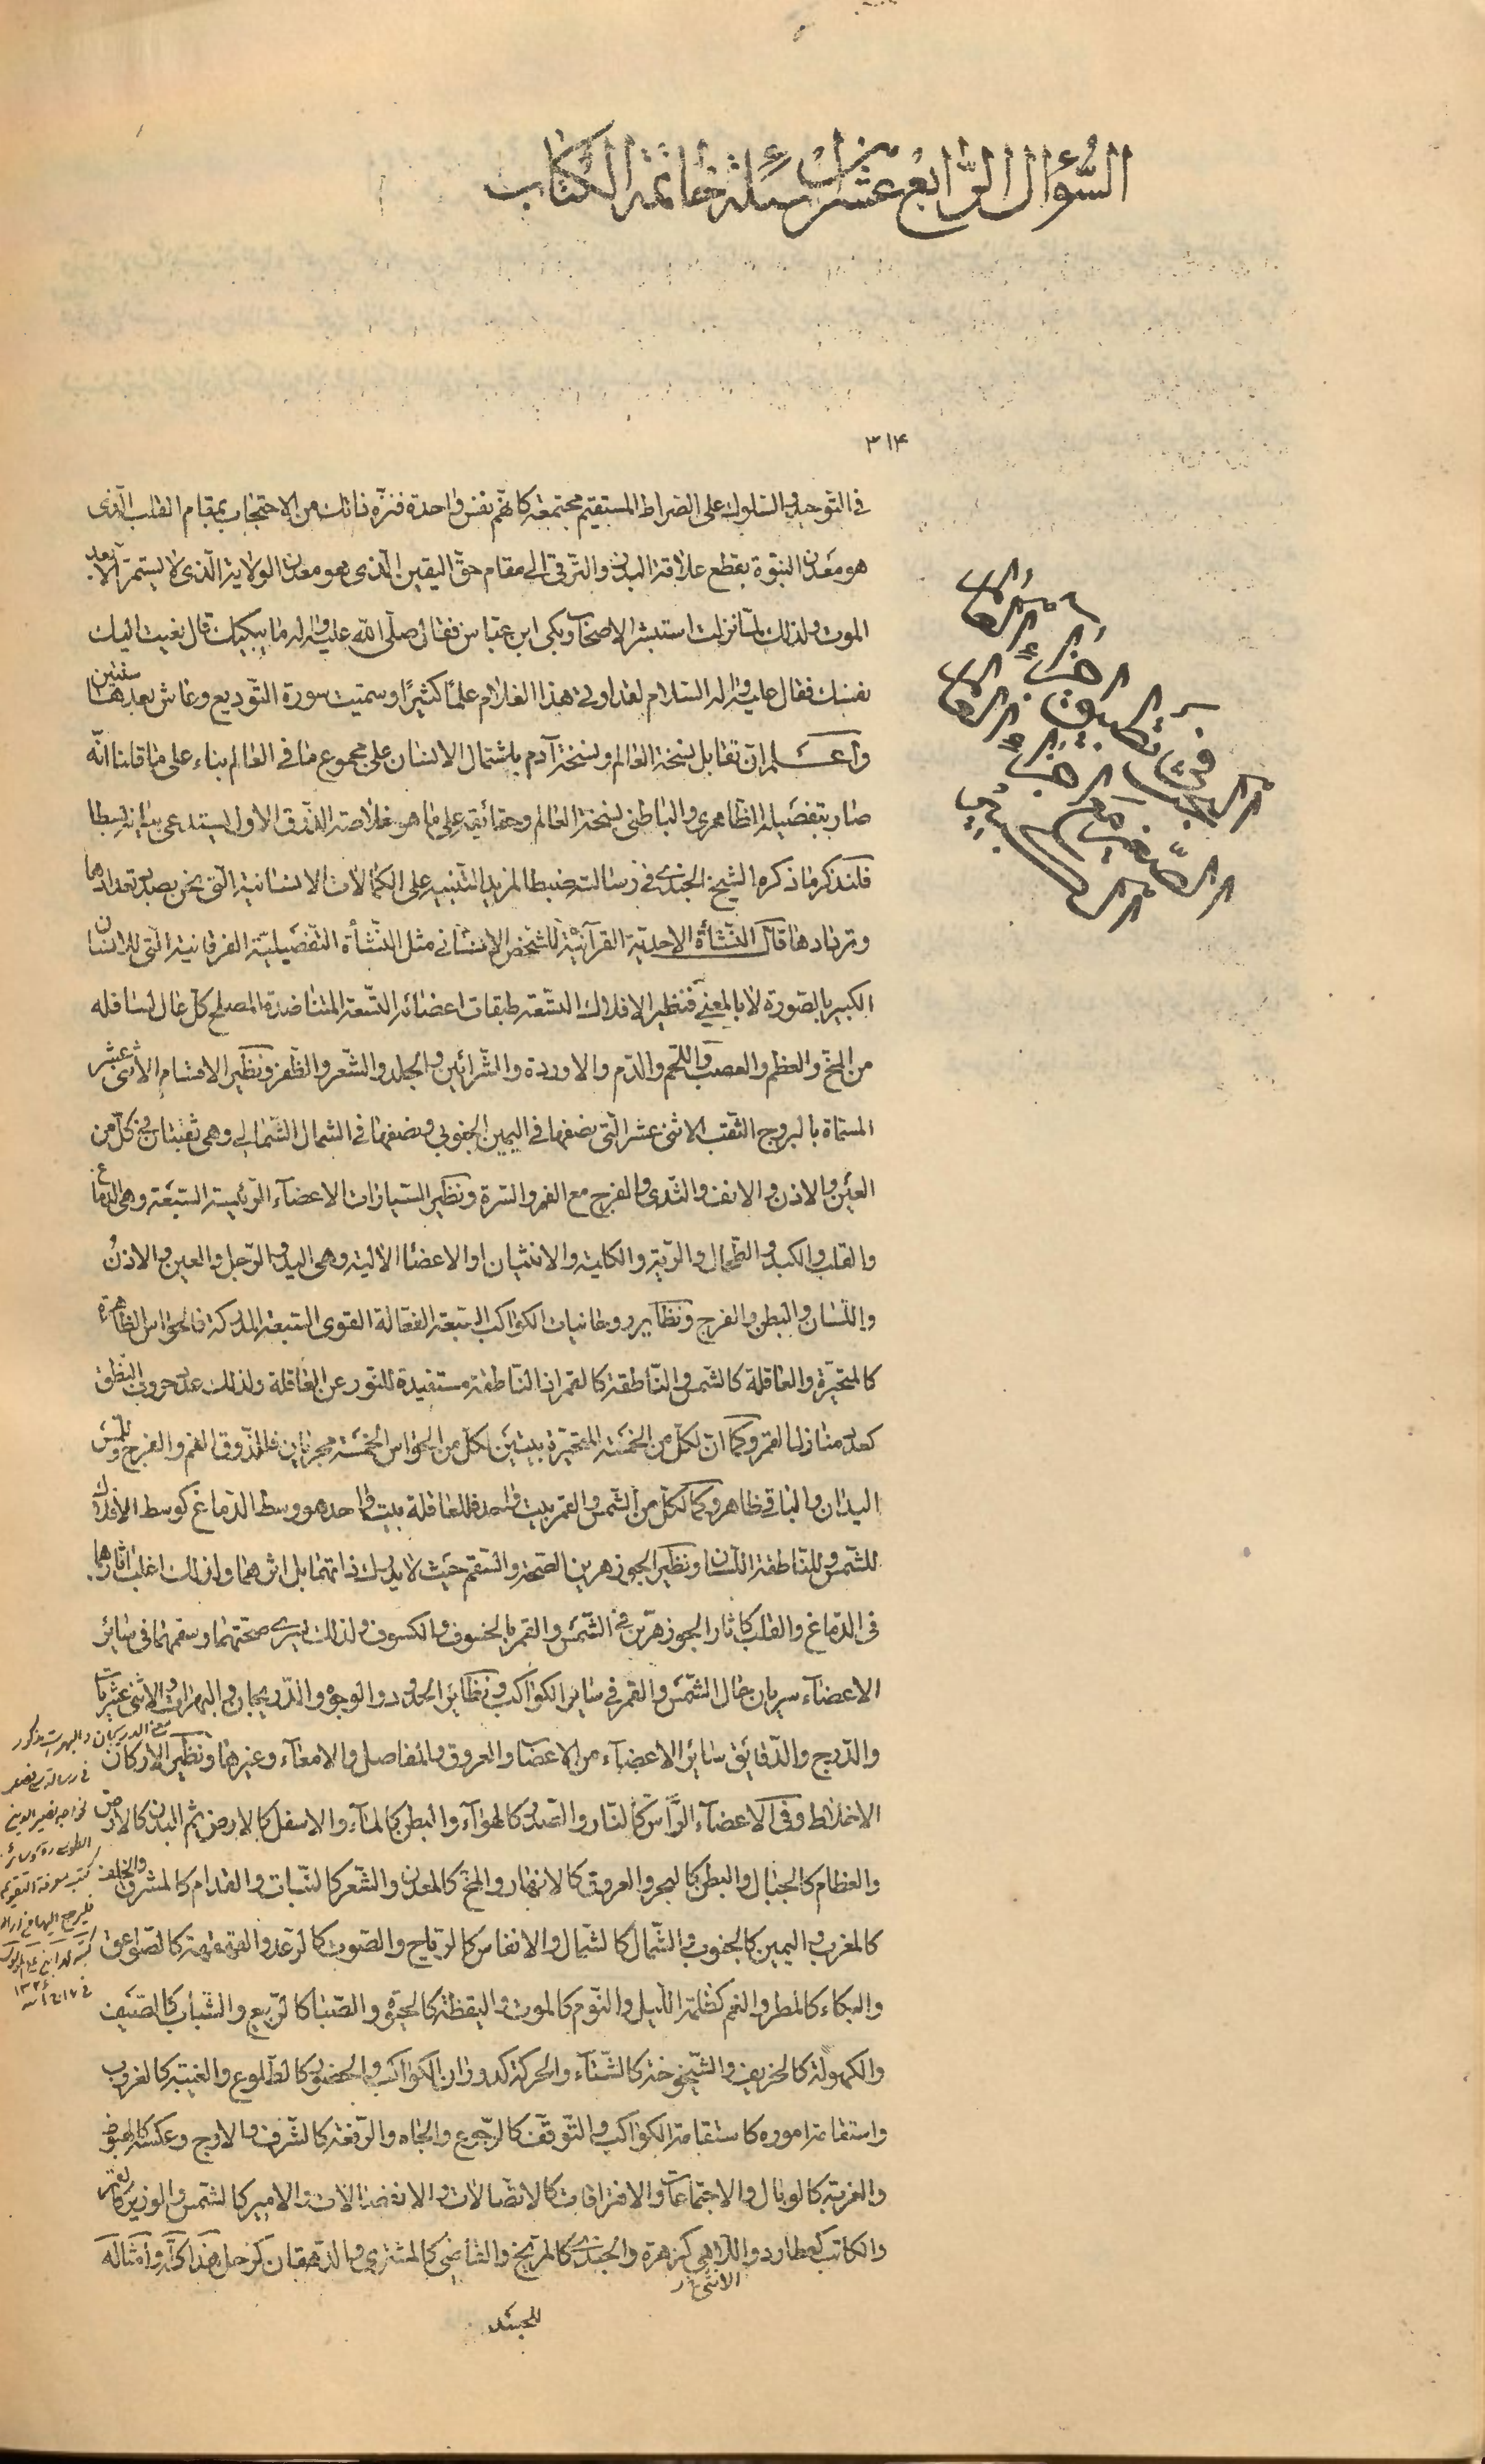 السُّؤال الرَّابع عشر من اسئلة خاتمة الكتاب
٣١۴
في التّوحيد والسّلوك على الصّراط المستقيم مجتمعة كانّهم نفس واحدة فنزّه ذاتك من الاحتجاب بمقام القلب الّذى
هو معدن النبوّة بقطع علاقة البدن والترقى الى مقام حقّ اليقين الّذى هو معدن الولاية الّذى لا يستمرّ الّا بعد
الموت ولذلك لمّا نزلت استبشر الاصحاب وبكى ابن عبّاس فقال صلّى اللّه عليه واله ما يبكيك قال نعيت اليك
نفسك فقال عليه واله السّلام لقد اوتى هذا الغلام علمًا كثيرًا وسمّيت سورة التّوديع وعاش بعدها سنتين
واعلم انّ تقابل نسخة العالم ونسخة آدم باشتمال الانسان على مجموع ما في العالم بناء على ما قلنا انّه
صار بتفصيله الظاهرى والباطنى نسخة العالم وحقائقه على ما هو خلاصة الذّوق الاول يستدعى بيانه بسطا
فلنذكر ما ذكره الشيخ الجندى في رسالته ضبطا لمزيد التنبيه على الكمالات الانسانية الّتى نحن بصدد تعدادها
وتردادها قال النّشأة الاحديّة القرآنيّة للشّخص الانسانى مثل النّشأة التّفصيليّة الفرقانية الّتى للانسان
الكبير بالصّورة لا بالمعنى فنظير الافلاك التّسعة طبقات اعضائه التّسعة المتناضدة المصلح كلّ عال لسافله
من المخّ والعظم والعصب واللّحم والدّم والاوردة والشّرائين والجلد والشّعر والظّفر ونظير الاقسام الاثنى عشر
المسمّاة بالبروج الثّقب الاثنى عشر الّتى نصفها في اليمين الجنوبى ونصفها في الشمال الشّمالى وهى ثقبتان في كلّ من
العين والاذن والانف والثّدى والفرج مع الفم والسّرة ونظير السّيارات الاعضآء الرّئيسة السّبعة وهى الدّماغ
والقلب والكبد والطّحال والرّية والكلية والانثيان او الاعضا الالية وهى اليد والرّجل والعين والاذن
واللّسان والبطن والفرج ونظاير روحانيات الكواكب السّبعة الفعّالة القوى السّبعة المدركة فالحواس الظاهرة
كالمتحيّرة والعاقلة كالشّمس والنّاطقة كالقمر اذ النّاطقة مستفيدة للنّور عن العاقلة ولذلك عدد حروف النّطق
كعدد منازل القمر وكما انّ لكلّ من الخمسة المتحيّرة بيتين لكلّ من الحواس الخمسة مجريان فللذّوق الفم والفرج وللّمس
اليدان والباقى ظاهر وكما لكلّ من الشّمس والقمر بيت واحد فللعاقلة بيت واحد هو وسط الدّماغ كوسط الافلاك
للشّمس وللنّاطقة اللّسان ونظير الجوزهرين الصّحة والسّقم حيث لا يدرك ذاتهما بل اثرهما ولذلك اغلب اثارهما
فى الدّماغ والقلب كاثار الجوزهرّين في الشّمس والقمر بالخسوف والكسوف ولذلك يسرى صحّتهما وسقمهما في سائر
الاعضآء سريان حال الشّمس والقمر في سائر الكواكب ونظائر الحدود والوجوه والدّريجان والبهرات والاثنى عشريات
والدّرج والدّقايق سائر الاعضآء من الاعضا والعروق والمفاصل والامعآء وغيرها ونظير الاركان
الاخلاط وفى الاعضآء الرّأس كالنّار والصّدر كالهوآء والبطن كالمآء والاسفل كالارض ثم البدن كالارض
والعظام كالجبال والبطن كالبحر والعروق كالانهار والمخّ كالمعدن والشّعر كالنّبات والقدّام كالمشرق والخلف
كالمغرب واليمين كالجنوب والشّمال كالشمال والانفاس كالرّياح والصّوت كالرّعد والقهقهة كالصّواعق
والبكاء كالمطر والغم كظلمة اللّيل والنّوم كالموت واليقظة كالحيوة والصّبا كالرّبيع والشّباب كالصّيف
والكهولة كالخريف والشّيخوخة كالشّتآء والحركة كدوران الكواكب والحضور كالطّلوع والغيبة كالغروب
واستقامة اموره كاستقامة الكواكب والتّوقّف كالرّجوع والجاه والرّفعة كالشّرف والاوج وعكسه كالهبوط
والغربة كالوبال والاجتماعات والافتراقات كالاتّصالات والانفصالات والامير كالشّمس والوزير كالقمر
والكاتب كعطارد واللّاهى كزهرة والجندى كالمرّيخ والقاضى كالمشترى والدّهقان كزحل هذا كلّه وامثاله
الانثى
للجند
فى تطبيق اجزآء العالم
الصّغير مع اجزآء العالم
الكبير
معنى الدريجان والبهرات مذكور
فى رسالة سى فصل
لخواجه نصير الدين
الطوسى ره وسائر
كتب معرفة التقويم
فليرجع اليها من اراد